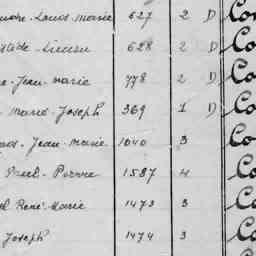 Louis Marie 627 2 D Co
628 2 D Co
Jean-Marie 778 2 D Co
Marie-Joseph 369 1 D Co
Jean-Marie 1040 3 Co
Paul-Pierre 1587 4 Co
René-Marie 1473 3 Co
Joseph 1474 3 Co